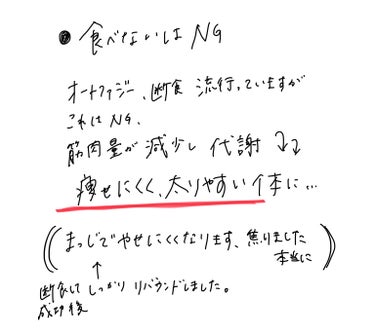 ● 食べないはNG
オートファジー、断食 流行っていますが
これはNG.
筋肉量が減少し 代謝↓↓
痩せにくく、太りやすい体に…
((まっじでやせにくくなります、焦りました
本当に))
↑
断食して しっかりリバウンドしました。
成功後